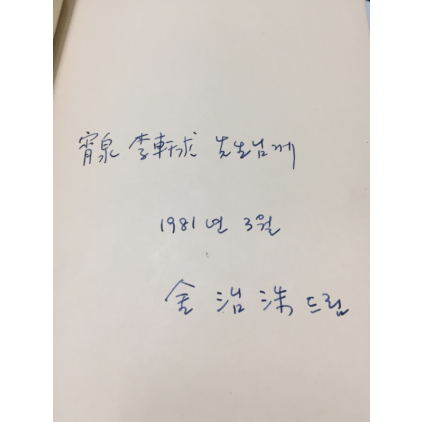 宵泉 李軒求 先生님께
1981년 3월
金治洙 드림